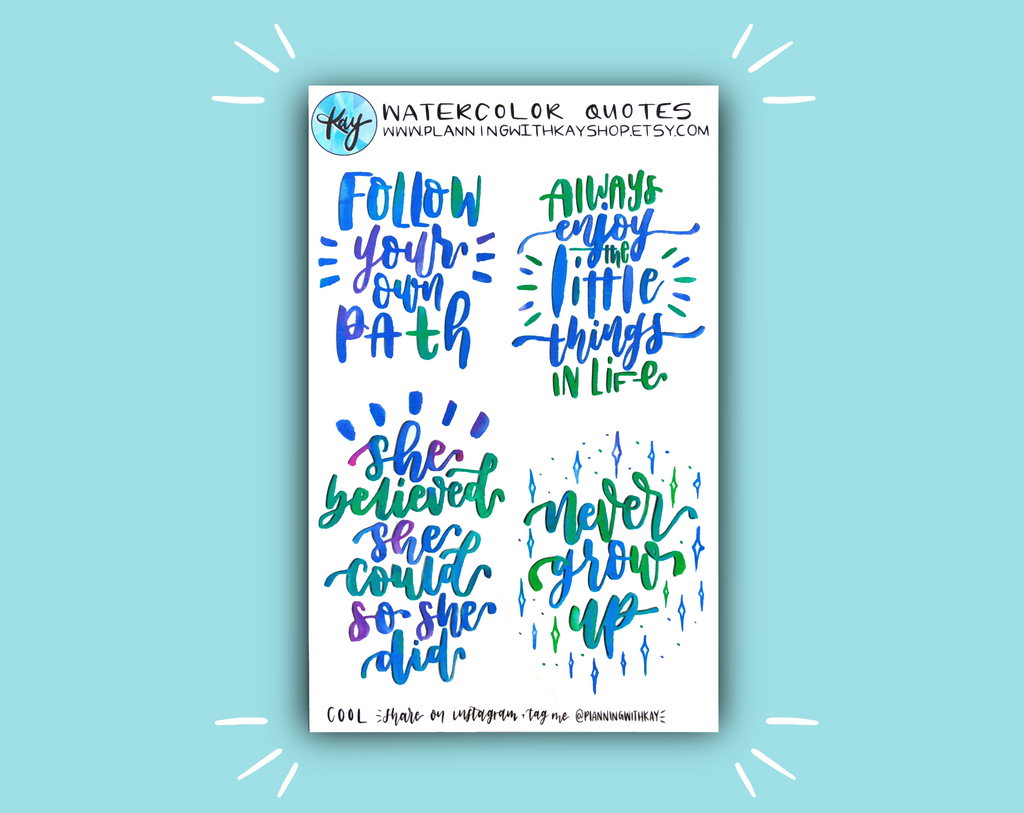 Kay
WATERCOLOR QUOTES
WWW.PLANNINGWITHKAYSHOP.ETSY.COM
FOLLOW
your
own
PATH
ALWAYS
enjoy
the
little
things
IN LIFE
she
believed
she
could
so she
did
never
grow
up
COOL share on instagram + tag me @PLANNINGWITHKAY